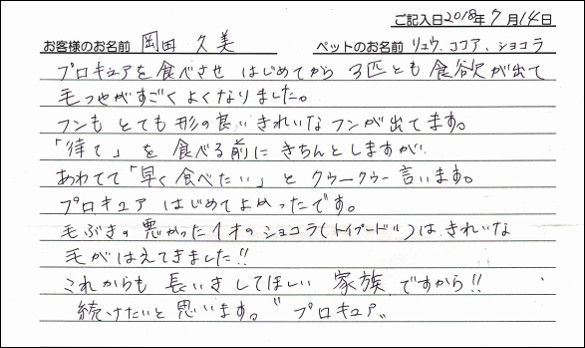 ご記入日2018年7月14日
お客様のお名前 岡田 久美 ペットのお名前 リュウ、ココア、ショコラ
プロキュアを食べさせ はじめてから 3匹とも 食欲が出て
毛つやがすごく よくなりました。
フンも とても 形の良い きれいな フンが 出てます。
「待て」を 食べる前に きちんとしますが、
あわてて「早く食べたい」と クゥークゥー 言います。
プロキュア はじめて よかったです。
毛ぶきの 悪かった 1才の ショコラ(トイプードル)は、きれいな
毛が はえてきました!!
これからも 長いき してほしい 家族 ですから!!
続けたいと 思います。〝プロキュア〟